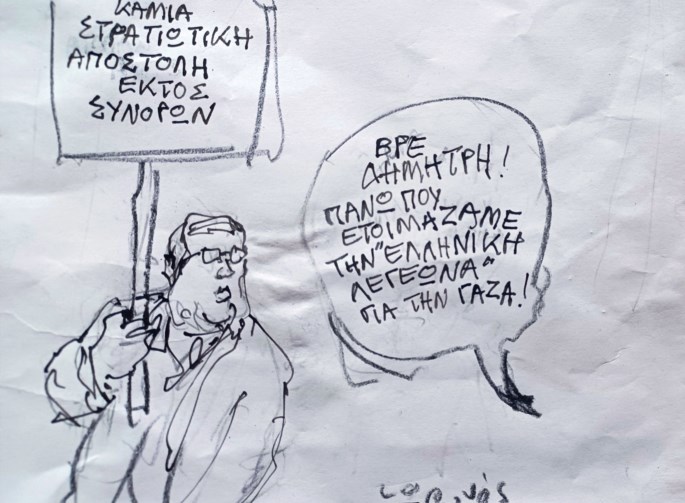 ΚΑΜΙΑ
ΣΤΡΑΤΙΩΤΙΚΗ
ΑΠΟΣΤΟΛΗ
ΕΚΤΟΣ
ΣΥΝΟΡΩΝ
ΒΡΕ
ΔΗΜΗΤΡΗ!
ΠΑΝΩ ΠΟΥ
ΕΤΟΙΜΑΖΑΜΕ
ΤΗΝ "ΕΛΛΗΝΙΚΗ
ΛΕΓΕΩΝΑ"
ΓΙΑ ΤΗΝ ΓΑΖΑ!